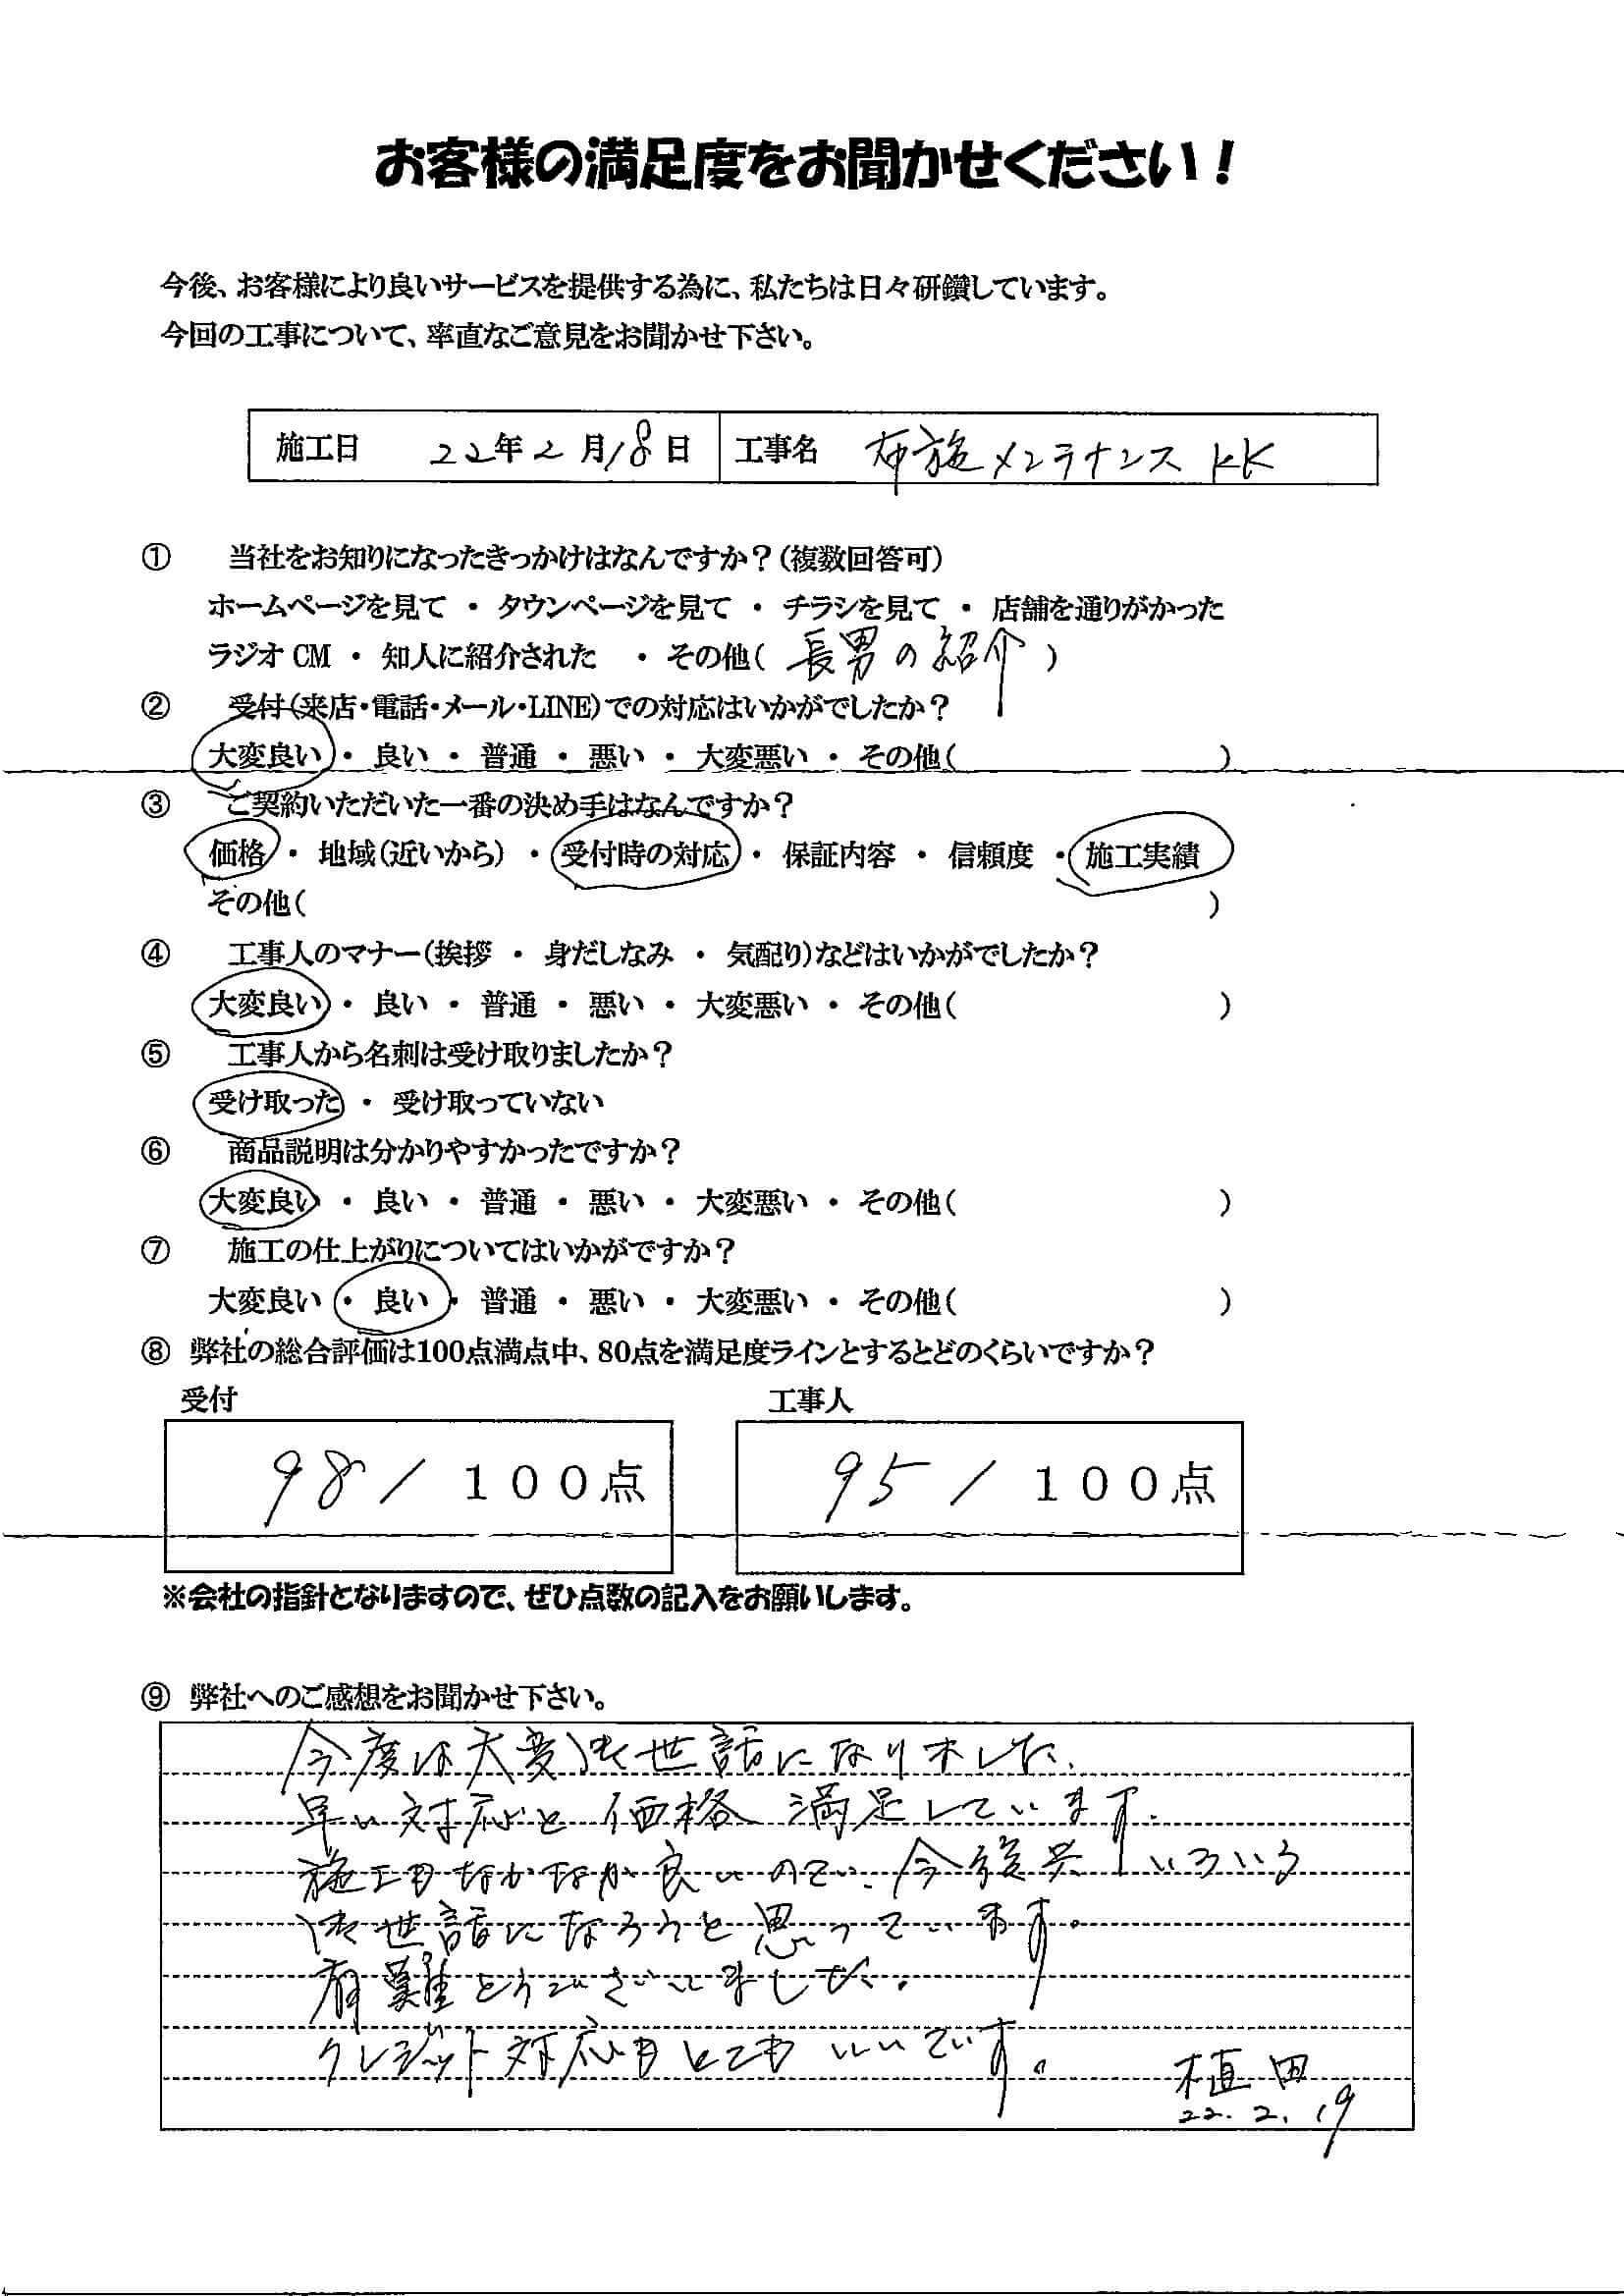 お客様の満足度をお聞かせください！
今後、お客様により良いサービスを提供する為に、私たちは日々研鑽しています。
今回の工事について、率直なご意見をお聞かせ下さい。
施工日 22年2月18日 工事名 布施メンテナンスKK
① 当社をお知りになったきっかけはなんですか？（複数回答可）
ホームページを見て ・ タウンページを見て ・ チラシを見て ・ 店舗を通りがかった
ラジオCM ・ 知人に紹介された ・ その他（ 長男の紹介 ）
② 受付（来店・電話・メール・LINE）での対応はいかがでしたか？
大変良い ・ 良い ・ 普通 ・ 悪い ・ 大変悪い ・ その他（ ）
③ ご契約いただいた一番の決め手はなんですか？
価格 ・ 地域（近いから） ・ 受付時の対応 ・ 保証内容 ・ 信頼度 ・ 施工実績
その他（ ）
④ 工事人のマナー（挨拶 ・ 身だしなみ ・ 気配り）などはいかがでしたか？
大変良い ・ 良い ・ 普通 ・ 悪い ・ 大変悪い ・ その他（ ）
⑤ 工事人から名刺は受け取りましたか？
受け取った ・ 受け取っていない
⑥ 商品説明は分かりやすかったですか？
大変良い ・ 良い ・ 普通 ・ 悪い ・ 大変悪い ・ その他（ ）
⑦ 施工の仕上がりについてはいかがですか？
大変良い ・ 良い ・ 普通 ・ 悪い ・ 大変悪い ・ その他（ ）
⑧ 弊社の総合評価は100点満点中、80点を満足度ラインとするとどのくらいですか？
受付 工事人
98 ／ 100点 95 ／ 100点
※会社の指針となりますので、ぜひ点数の記入をお願いします。
⑨ 弊社へのご感想をお聞かせ下さい。
今度は大変お世話になりました。
早い対応と価格 満足しています。
施工もなかなか良いので、今後共いろいろ
お世話になろうと思っています。
有難とうございました。
クレジット対応もとてもいいです。
植田
22.2.19